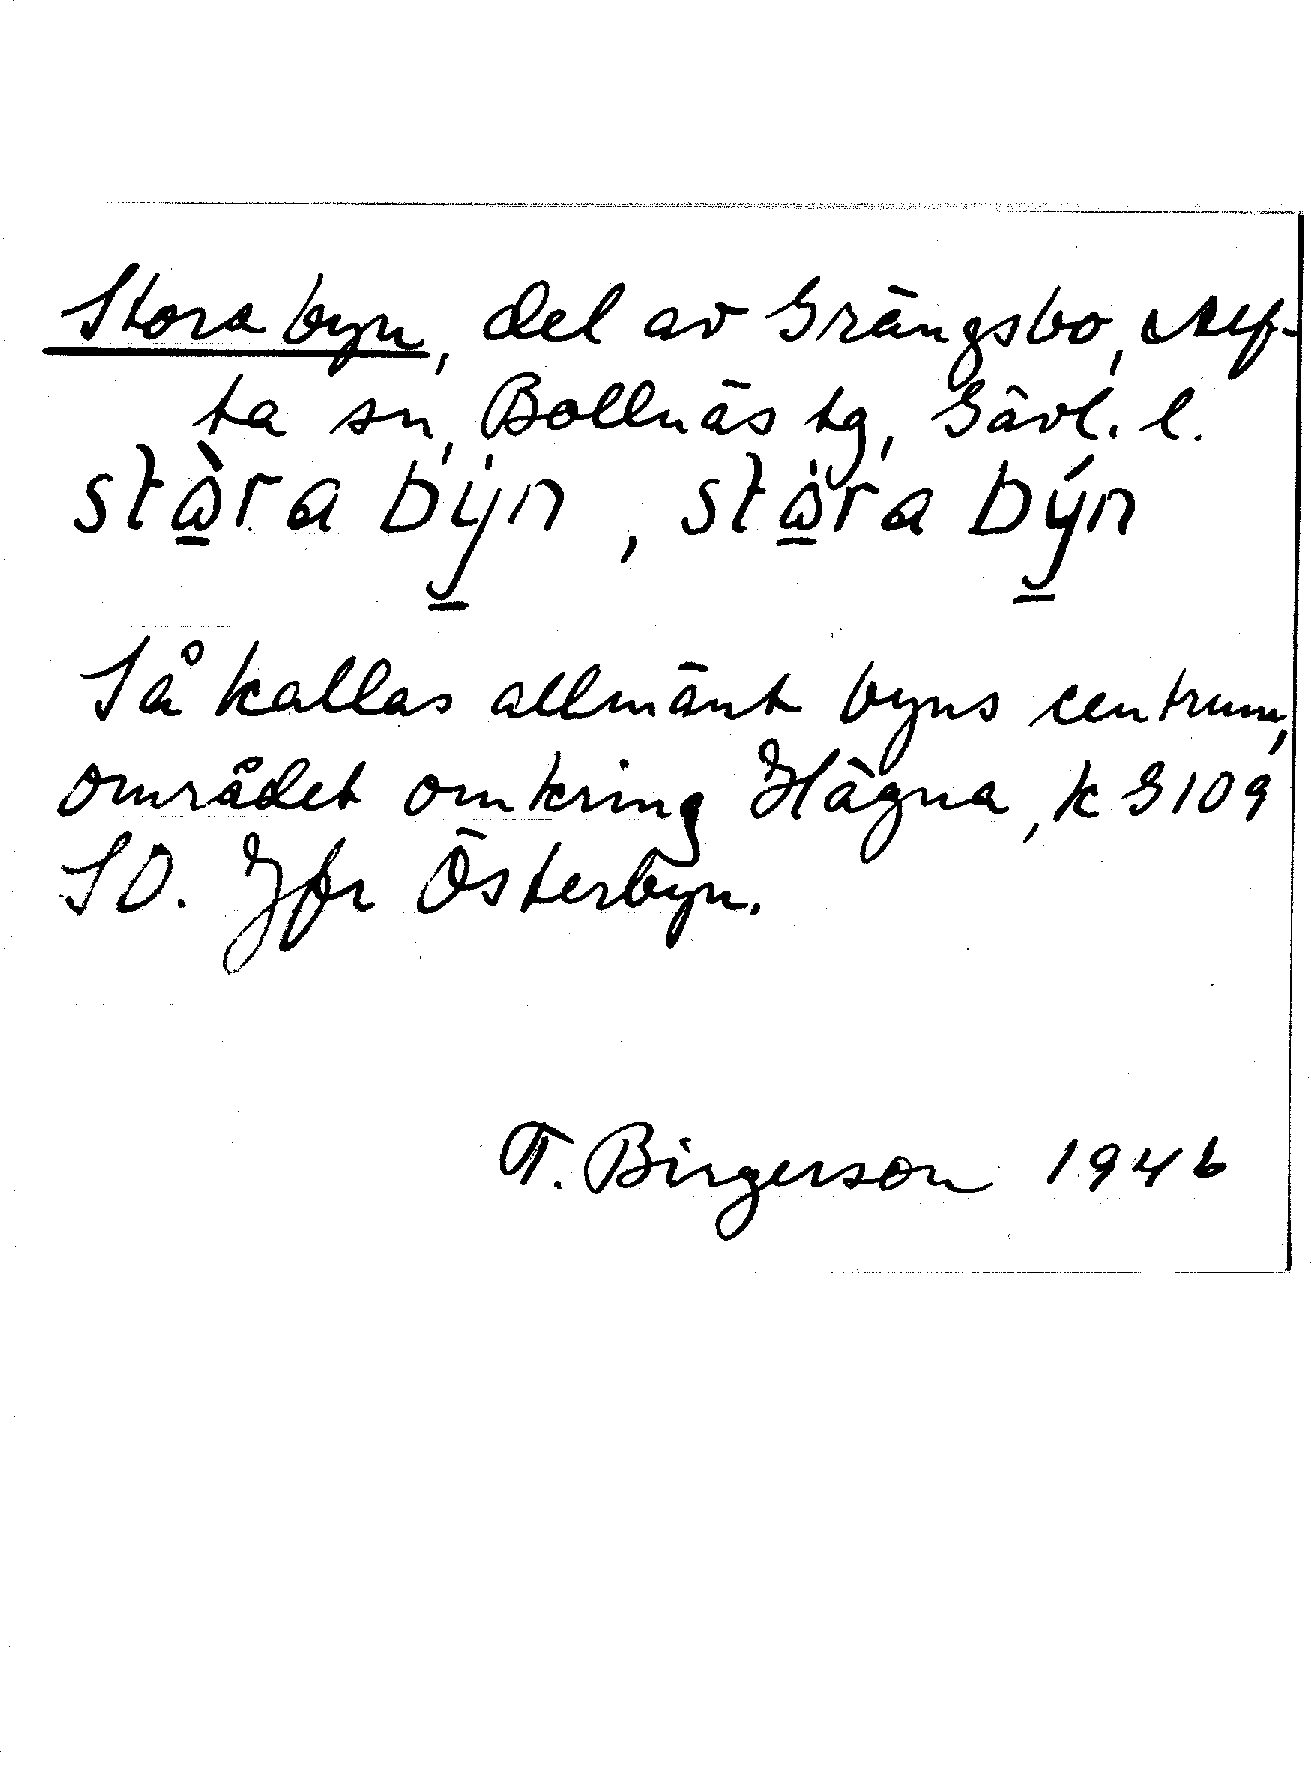 Stora byn, del av Grängsbo, Alf-
ta sn, Bollnäs tg, Gävl. l.
stὼ̱ra bẏ̱n, stω̱̇ra bý̱n
Så kallas allmänt byns centrum,
området omkring Hägna, k G109
SO. Jfr Österbyn.
T. Birgerson 1946